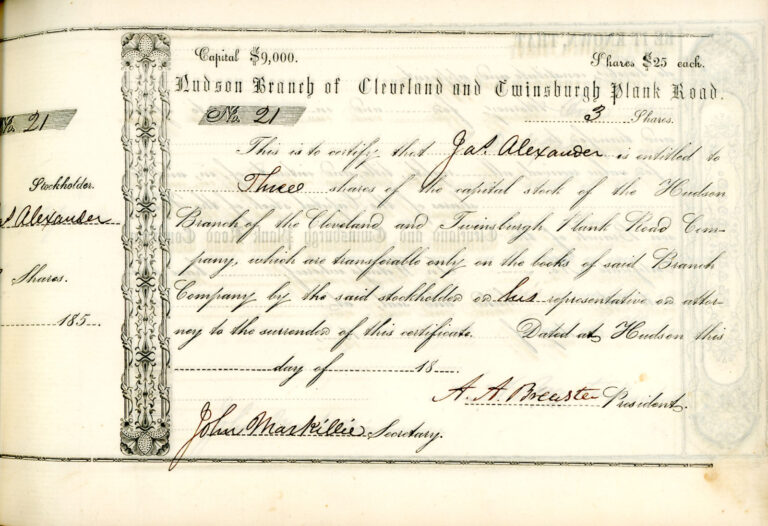 Capital $9,000. Shares $25 each.
Hudson Branch of Cleveland and Twinsburgh Plank Road.
No. 21 3 Shares.
This is to certify that Jas. Alexander is entitled to
Three shares of the capital stock of the Hudson
Branch of the Cleveland and Twinsburgh Plank Road Com-
pany, which are transferable only on the books of said Branch
Company by the said stockholder or his representative or attor-
ney to the surrender of this certificate. Dated at Hudson this
day of 18
A. A. Brewster President.
John Markillie Secretary.
No. 21
Stockholder.
Alexander
Shares.
185